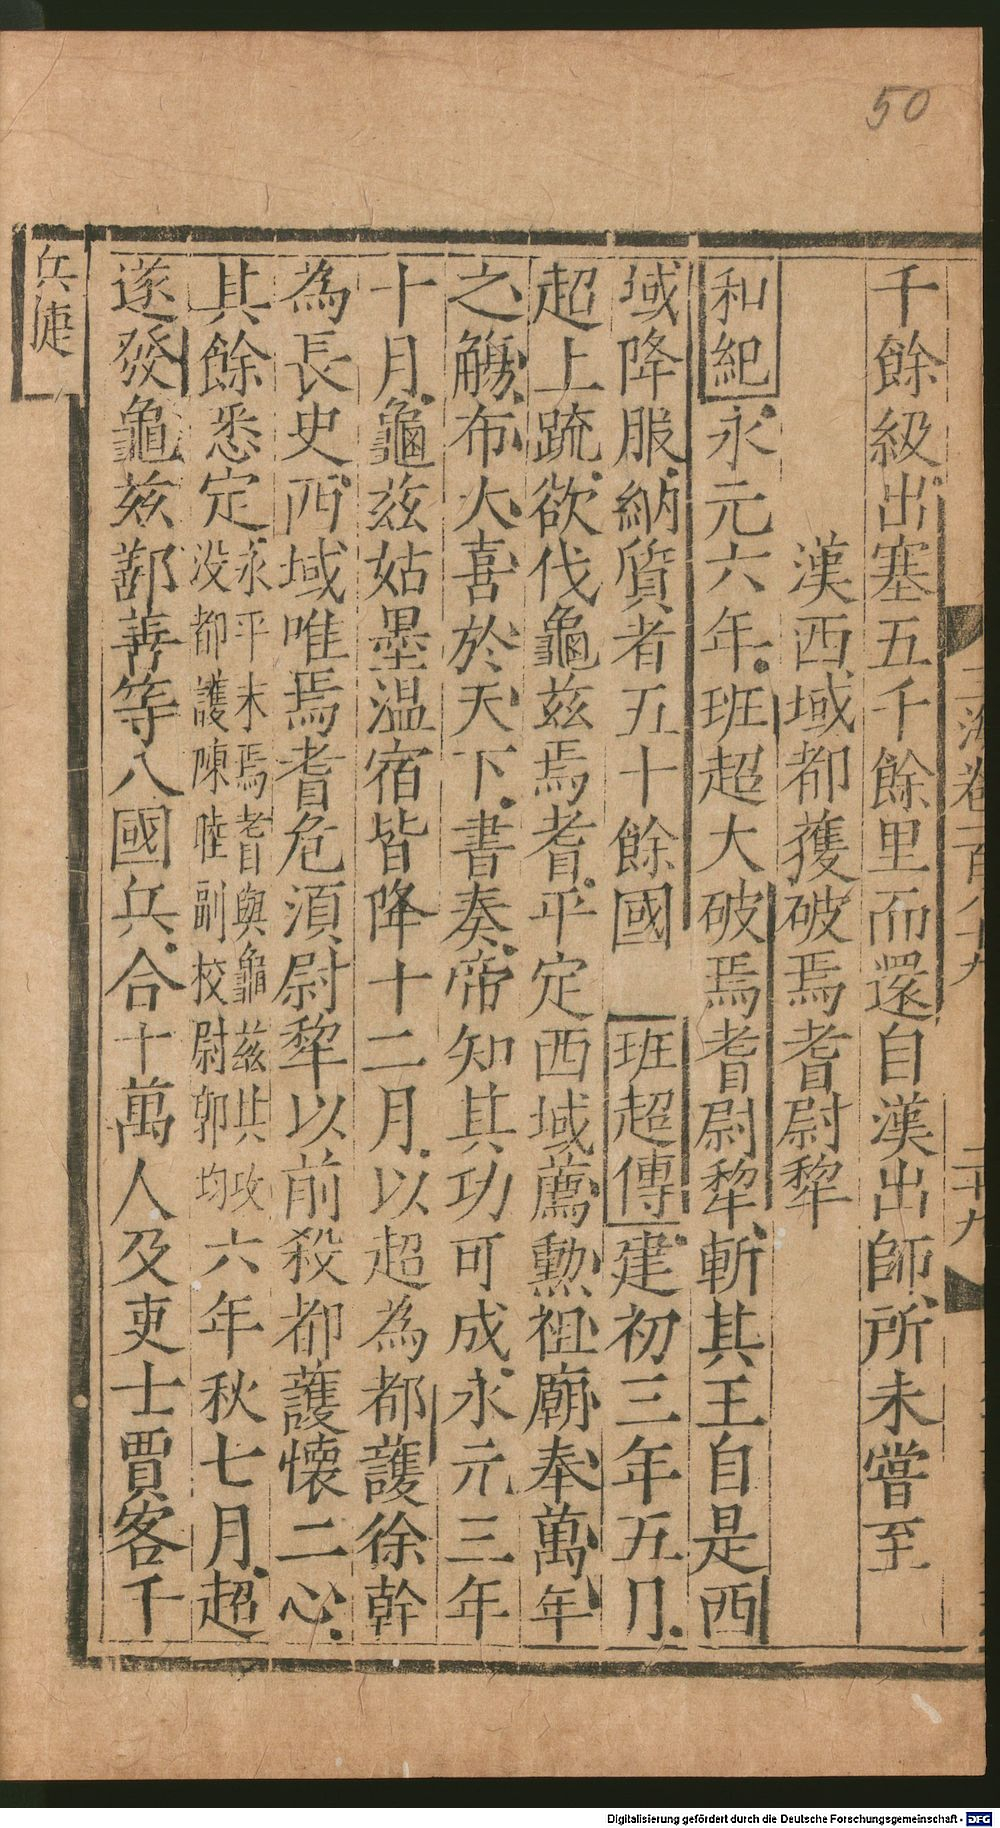 50
千餘級出塞五千餘里而還自漢出師所未嘗至
漢西域都獲破焉耆尉犂
和紀永元六年班超大破焉耆尉犂斬其王自是西
域降服納質者五十餘國 班超傳建初三年五月
超上疏欲伐龜茲焉耆平定西域薦勲祖廟奉萬年
之觴布大喜於天下書奏帝知其功可成永元三年
十月龜茲姑墨溫宿皆降十二月以超為都護徐幹
為長史西域唯焉耆危須尉犂以前殺都護懷二心
其餘悉定永平末焉耆與龜茲共攻没都護陳睦副校尉郭均六年秋七月超
遂發龜茲鄯善等八國兵合十萬人及吏士賈客千
兵捷
卷一百八十九
二十九
Digitalisierung gefördert durch die Deutsche Forschungsgemeinschaft - DFG